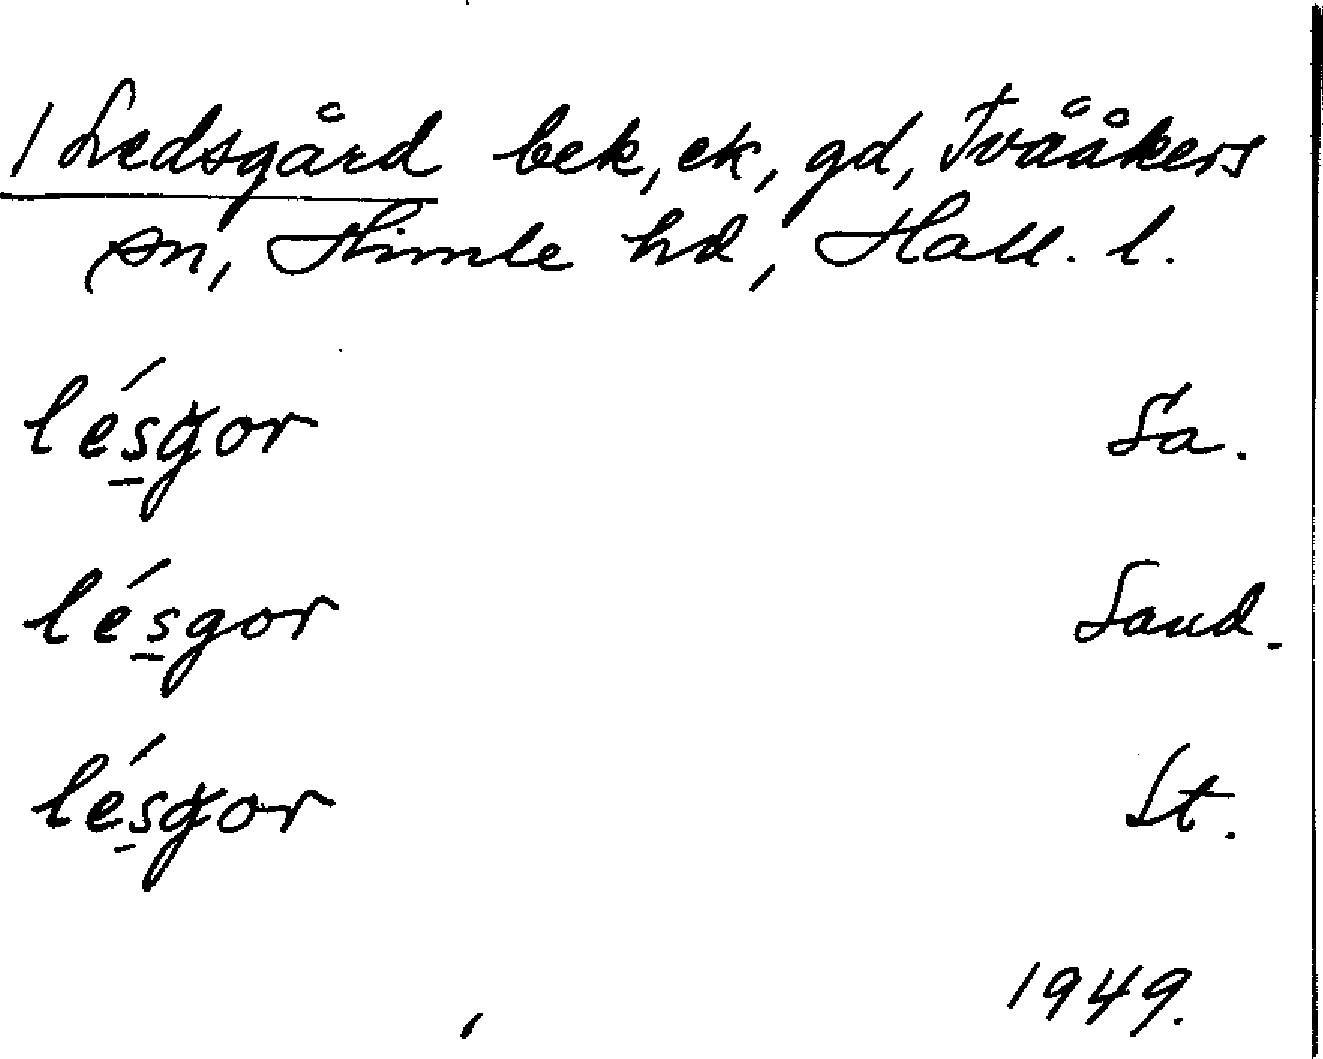 1 Ledsgård bek, ek, gd, Tvååkers
sn, Himle hd, Hall. l.
lésgor Sa.
lésgor Sand.
lésgor St.
1949.